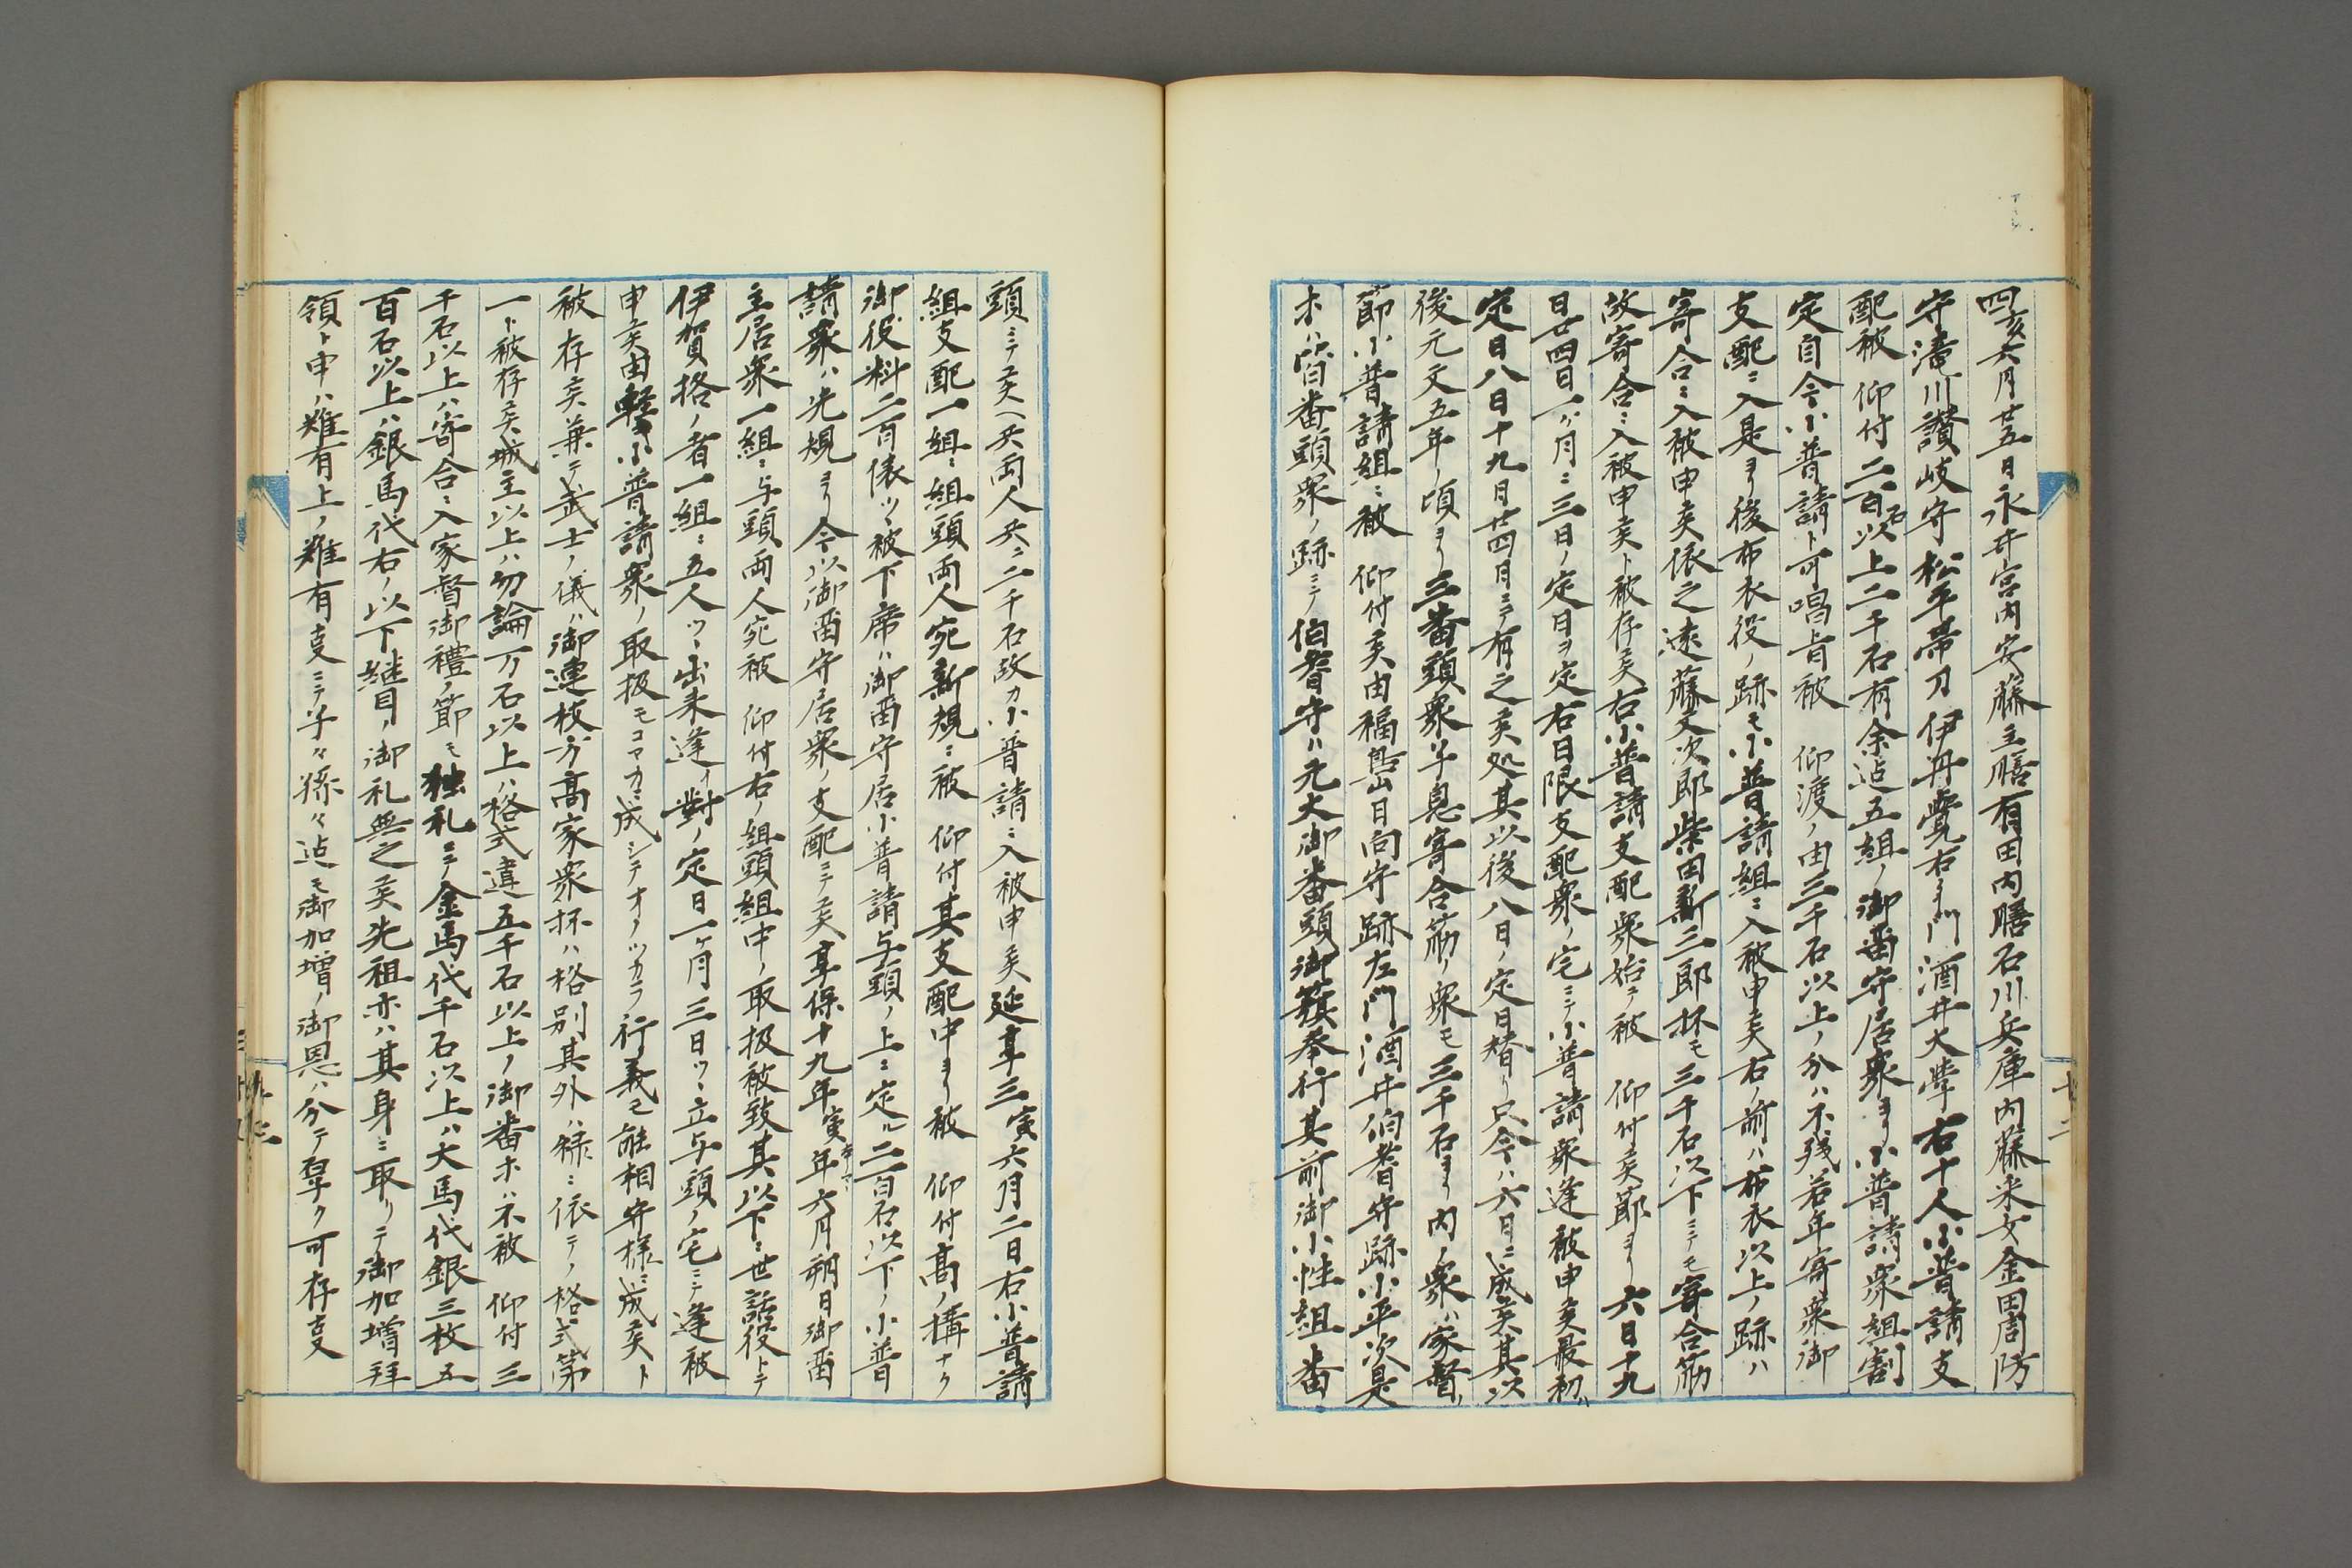 四亥六月廿五日永井宮内安藤主膳有田内膳石川兵庫内藤釆女金田周防
守滝川讃岐守松平帯刀伊丹覚右ヱ門酒井大学右十人小普請支
配被　仰付二百石以上二千石有余迠五組ノ御畄守居衆ヨリ小普請衆組割
定自今小普請ト可唱旨被　仰渡ノ由三千石以上ノ分ハ不残若年寄衆御
支配ニ入是ヨリ後布衣役ノ跡モ小普請組ニ入被申矦右ノ前ハ布衣以上ノ跡ハ
寄合ニ入被申矦依之遠藤文次郎柴田新三郎杯モ三千石以下ニテモ寄合筋
故寄合ニ入被申矦ト被存矦右小普請支配衆始テ被　仰付矦節ヨリ六日十九
日廿四日一ヶ月ニ三日ノ定日ヲ定右日限支配衆ノ宅ニテ小普請衆逢被申矦最初ハ
定日八日十九日廿四日ニテ有之矦処其以後八日ノ定日替り只今ハ六日ニ成矦其以
後元文五年ノ頃ヨリ三番頭衆子息寄合筋ノ衆モ三千石ヨリ内ノ衆ハ家督ノ
節小普請組ニ被　仰付矦由福嶌日向守跡左門酒井伯耆守跡小平次是
ホハ皆番頭衆ノ跡ニテ伯耆守ハ元大御番頭御籏奉行其前御小性組番
頭ニテ矦ヘ共両人共ニ二千石故カ小普請ニ入被申矦延享三寅六月二日右小普請
組支配一組ニ組頭両人宛新規ニ被　仰付其支配中ヨリ被　仰付高ノ構ナク
御役料二百俵ツヽ被下席ハ御畄守居小普請与頭ノ上ニ定ル二百石以下ノ小普
請衆ハ先規ヨリ今以御畄守居衆ノ支配ニテ矦享保十九年寅年六月朔日御畄
主居衆一組ニ与頭両人宛被　仰付右ノ組頭組中ノ取扱被致其以下ニ世話役トテ
伊賀格ノ者一組ニ五人ツヽ出来逢イ対ノ定日一ヶ月三日ツヽ立与頭ノ宅ニテ逢被
申矦由軽キ小普請衆ノ取扱モコマカニ成シテオノツカラ行義モ能相守様ニ成矦ト
被存矦兼テ武士ノ儀ハ御連枝方高家衆杯ハ格別其外ハ禄ニ依テノ格式第
一ト被存矦城主以上ハ勿論万石以上ハ格式違五千石以上ノ御番ホハ不被　仰付三
千石以上ハ寄合ニ入家督御禮ノ節モ独礼ニテ金馬代千石以上ハ大馬代銀三枚五
百石以上ハ銀馬代右ノ以下継目ノ御礼無之矦先祖亦ハ其身ニ取リテ御加増拝
領ト申ハ難有上ノ難有支ニテ子々孫々迠モ御加増ノ御恩ハ分テ厚ク可存支